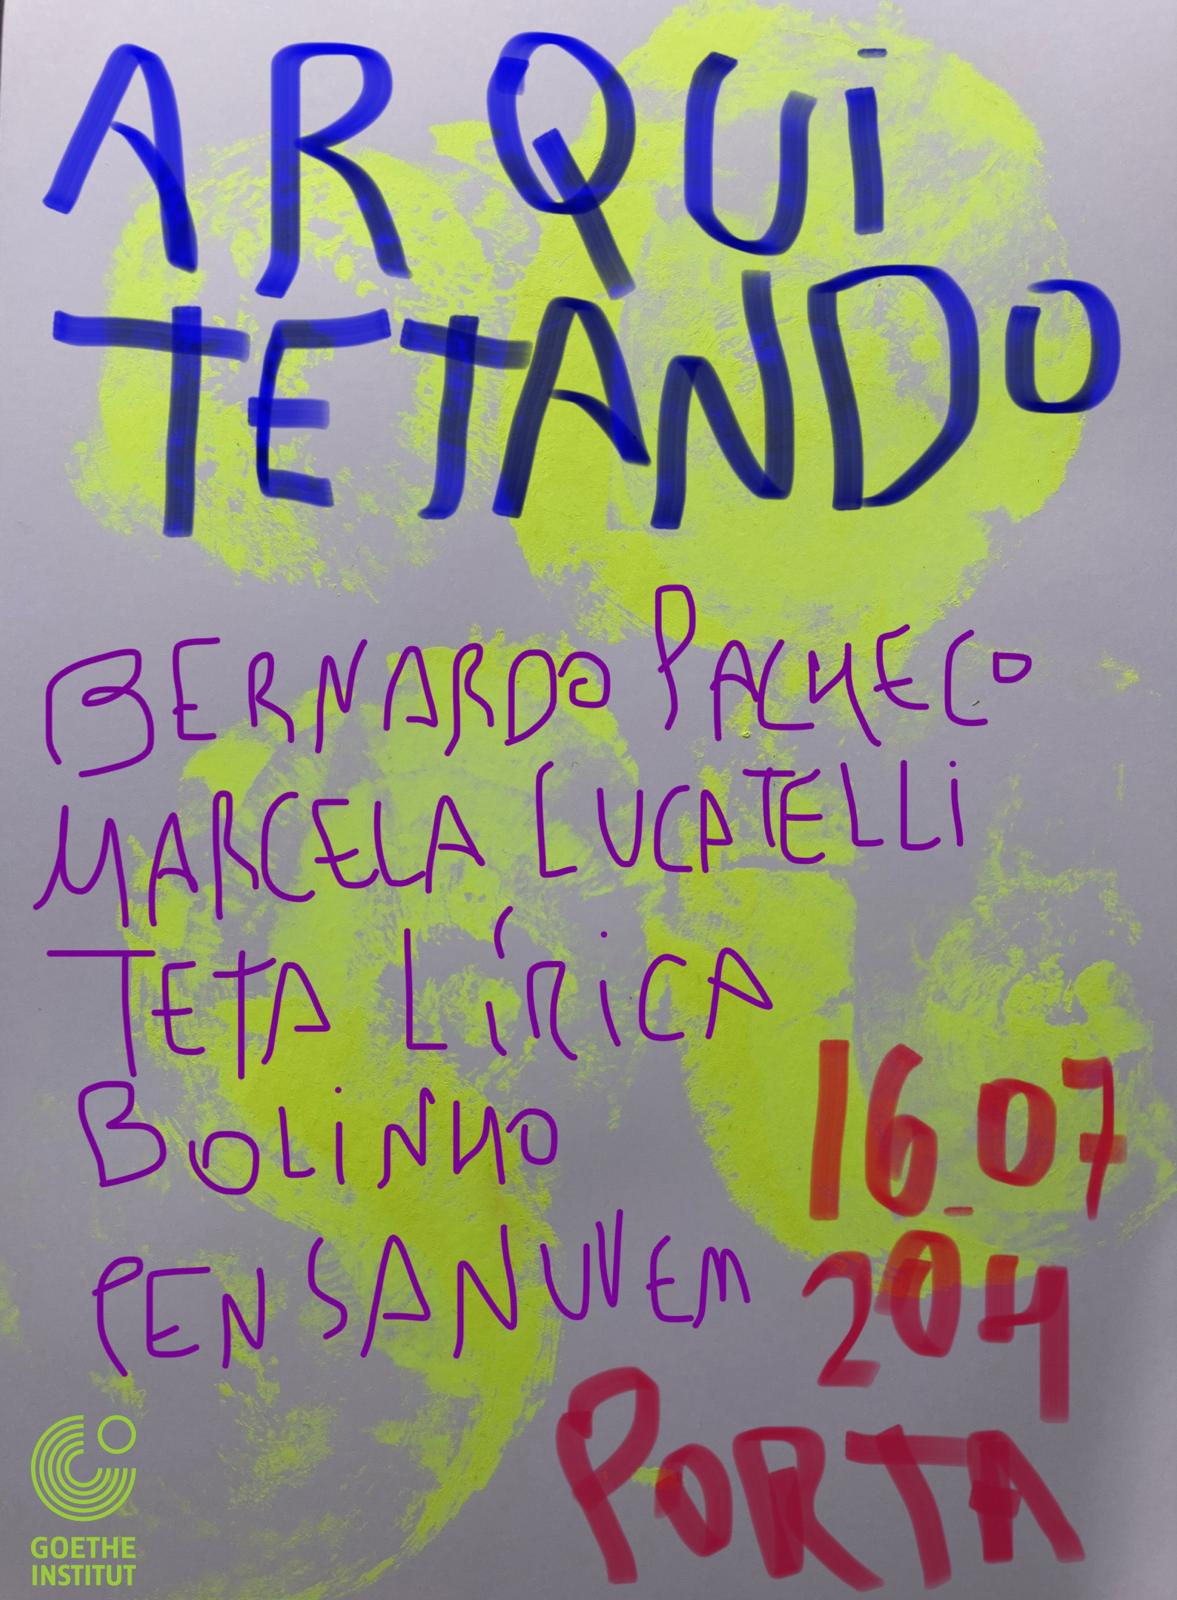 ARQUi
TETANDO
BERNARDO PACHECO
MARCELA LUCATELLi
TETA LÍRiCA
BOLiNHO
PENSANUVEM
16.07
20H
PORTA
GOETHE
INSTITUT